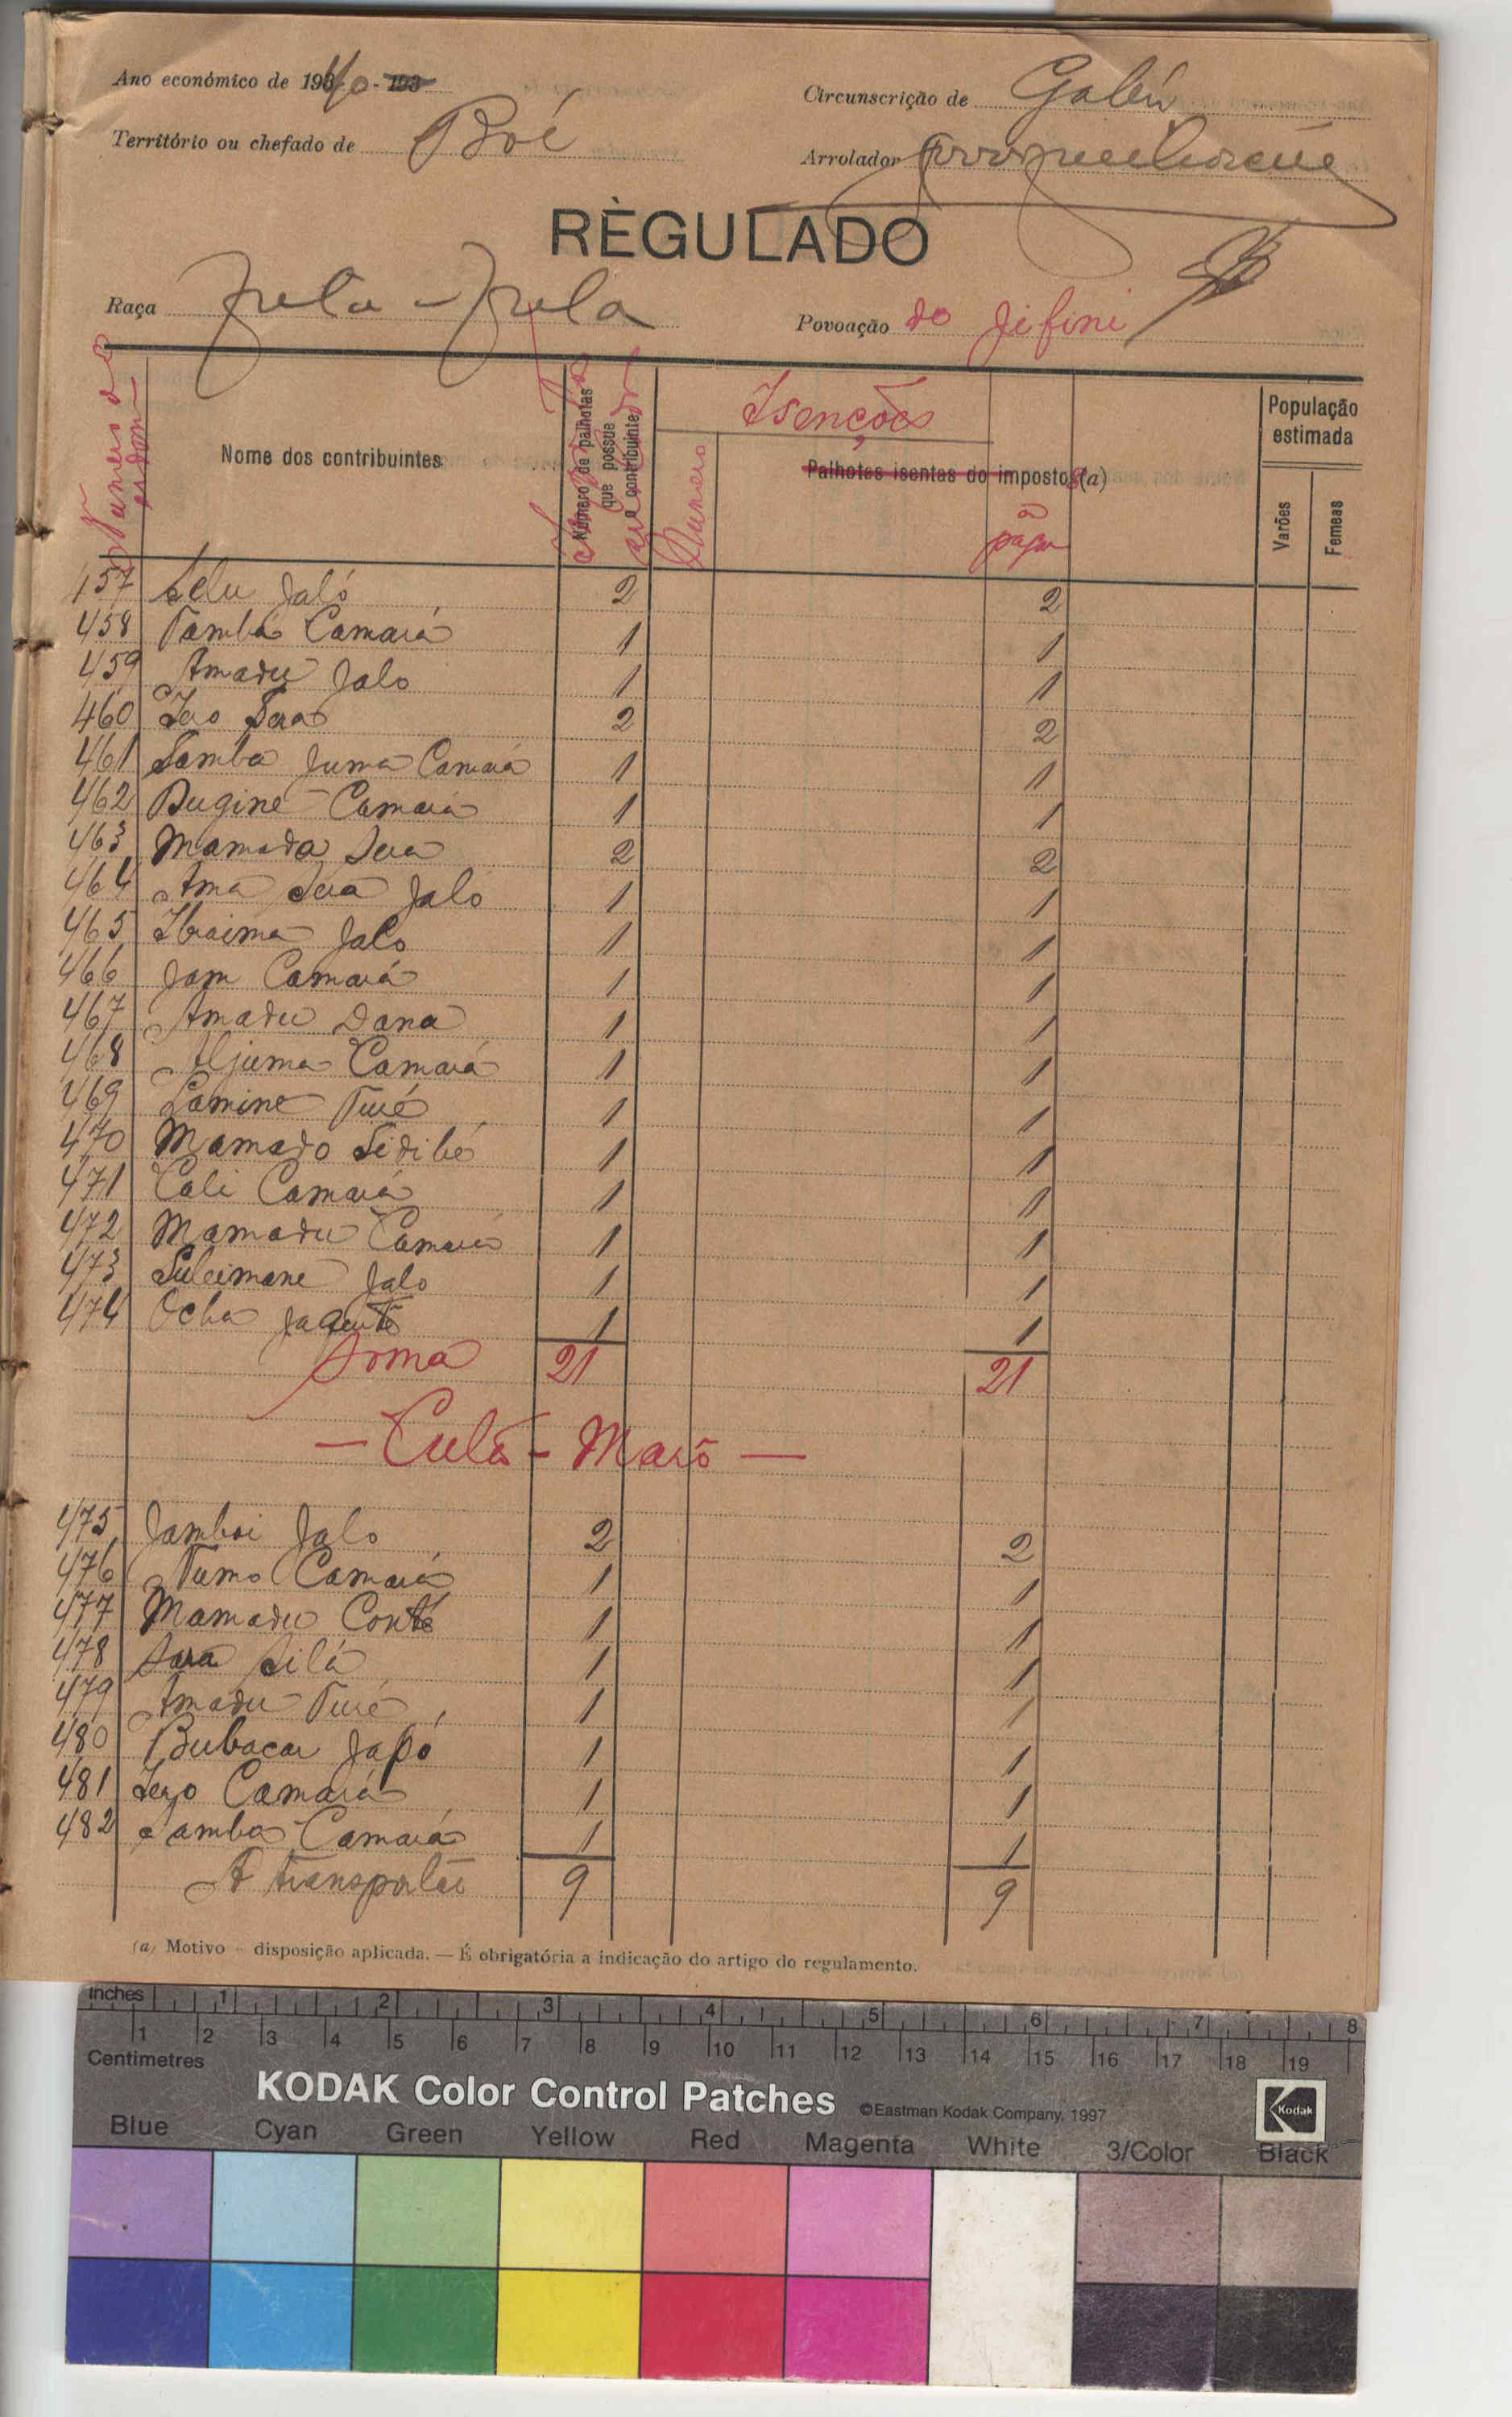 Ano económico de 1940 - 193
Circunscrição de Gabú
Território ou chefado de Boé
Arrolador
RÈGULADO
Raça Fula - Fula
Povoação do Jifini
Numero de ordem
Nome dos contribuintes
Número de palhotas que possue o contribuinte
Isenções
Numero
Palhotas isentas do impostos (a)
a pagar
População estimada
Varões
Femeas
157 Selu Jaló 2 2
458 Tamba Camará 1 1
459 Amadu Jalo 1 1
460 2 2
461 Samba Juma Camará 1 1
462 Dugine Camará 1 1
463 Mamada Sera 2 2
464 Ama Sera Jaló 1 1
465 Ibraima Jalo 1 1
466 Jam Camará 1 1
467 Amadu Dana 1 1
468 Aljuma Camará 1 1
469 Lamine Turé 1 1
470 Mamado Sidibé 1 1
471 Cali Camará 1 1
472 Mamadu Camará 1 1
473 Suleimane Jalo 1 1
474 Ocha 1 1
Soma 21 21
— Culá - Maró —
475 Jamboi Jalo 2 2
476 Tumo Camará 1 1
477 Mamadu Conté 1 1
478 Sara Silá 1 1
479 Amadu Turé 1 1
480 Bubacar Jaló 1 1
481 Camará 1 1
482 Samba Camará 1 1
A transportar 9 9
(a) Motivo - disposição aplicada. — É obrigatória a indicação do artigo do regulamento.
Inches 1 2 3 4 5 6 7 8
1 2 3 4 5 6 7 8 9 10 11 12 13 14 15 16 17 18 19
Centimetres
KODAK Color Control Patches ©Eastman Kodak Company, 1997
Kodak
Blue Cyan Green Yellow Red Magenta White 3/Color Black